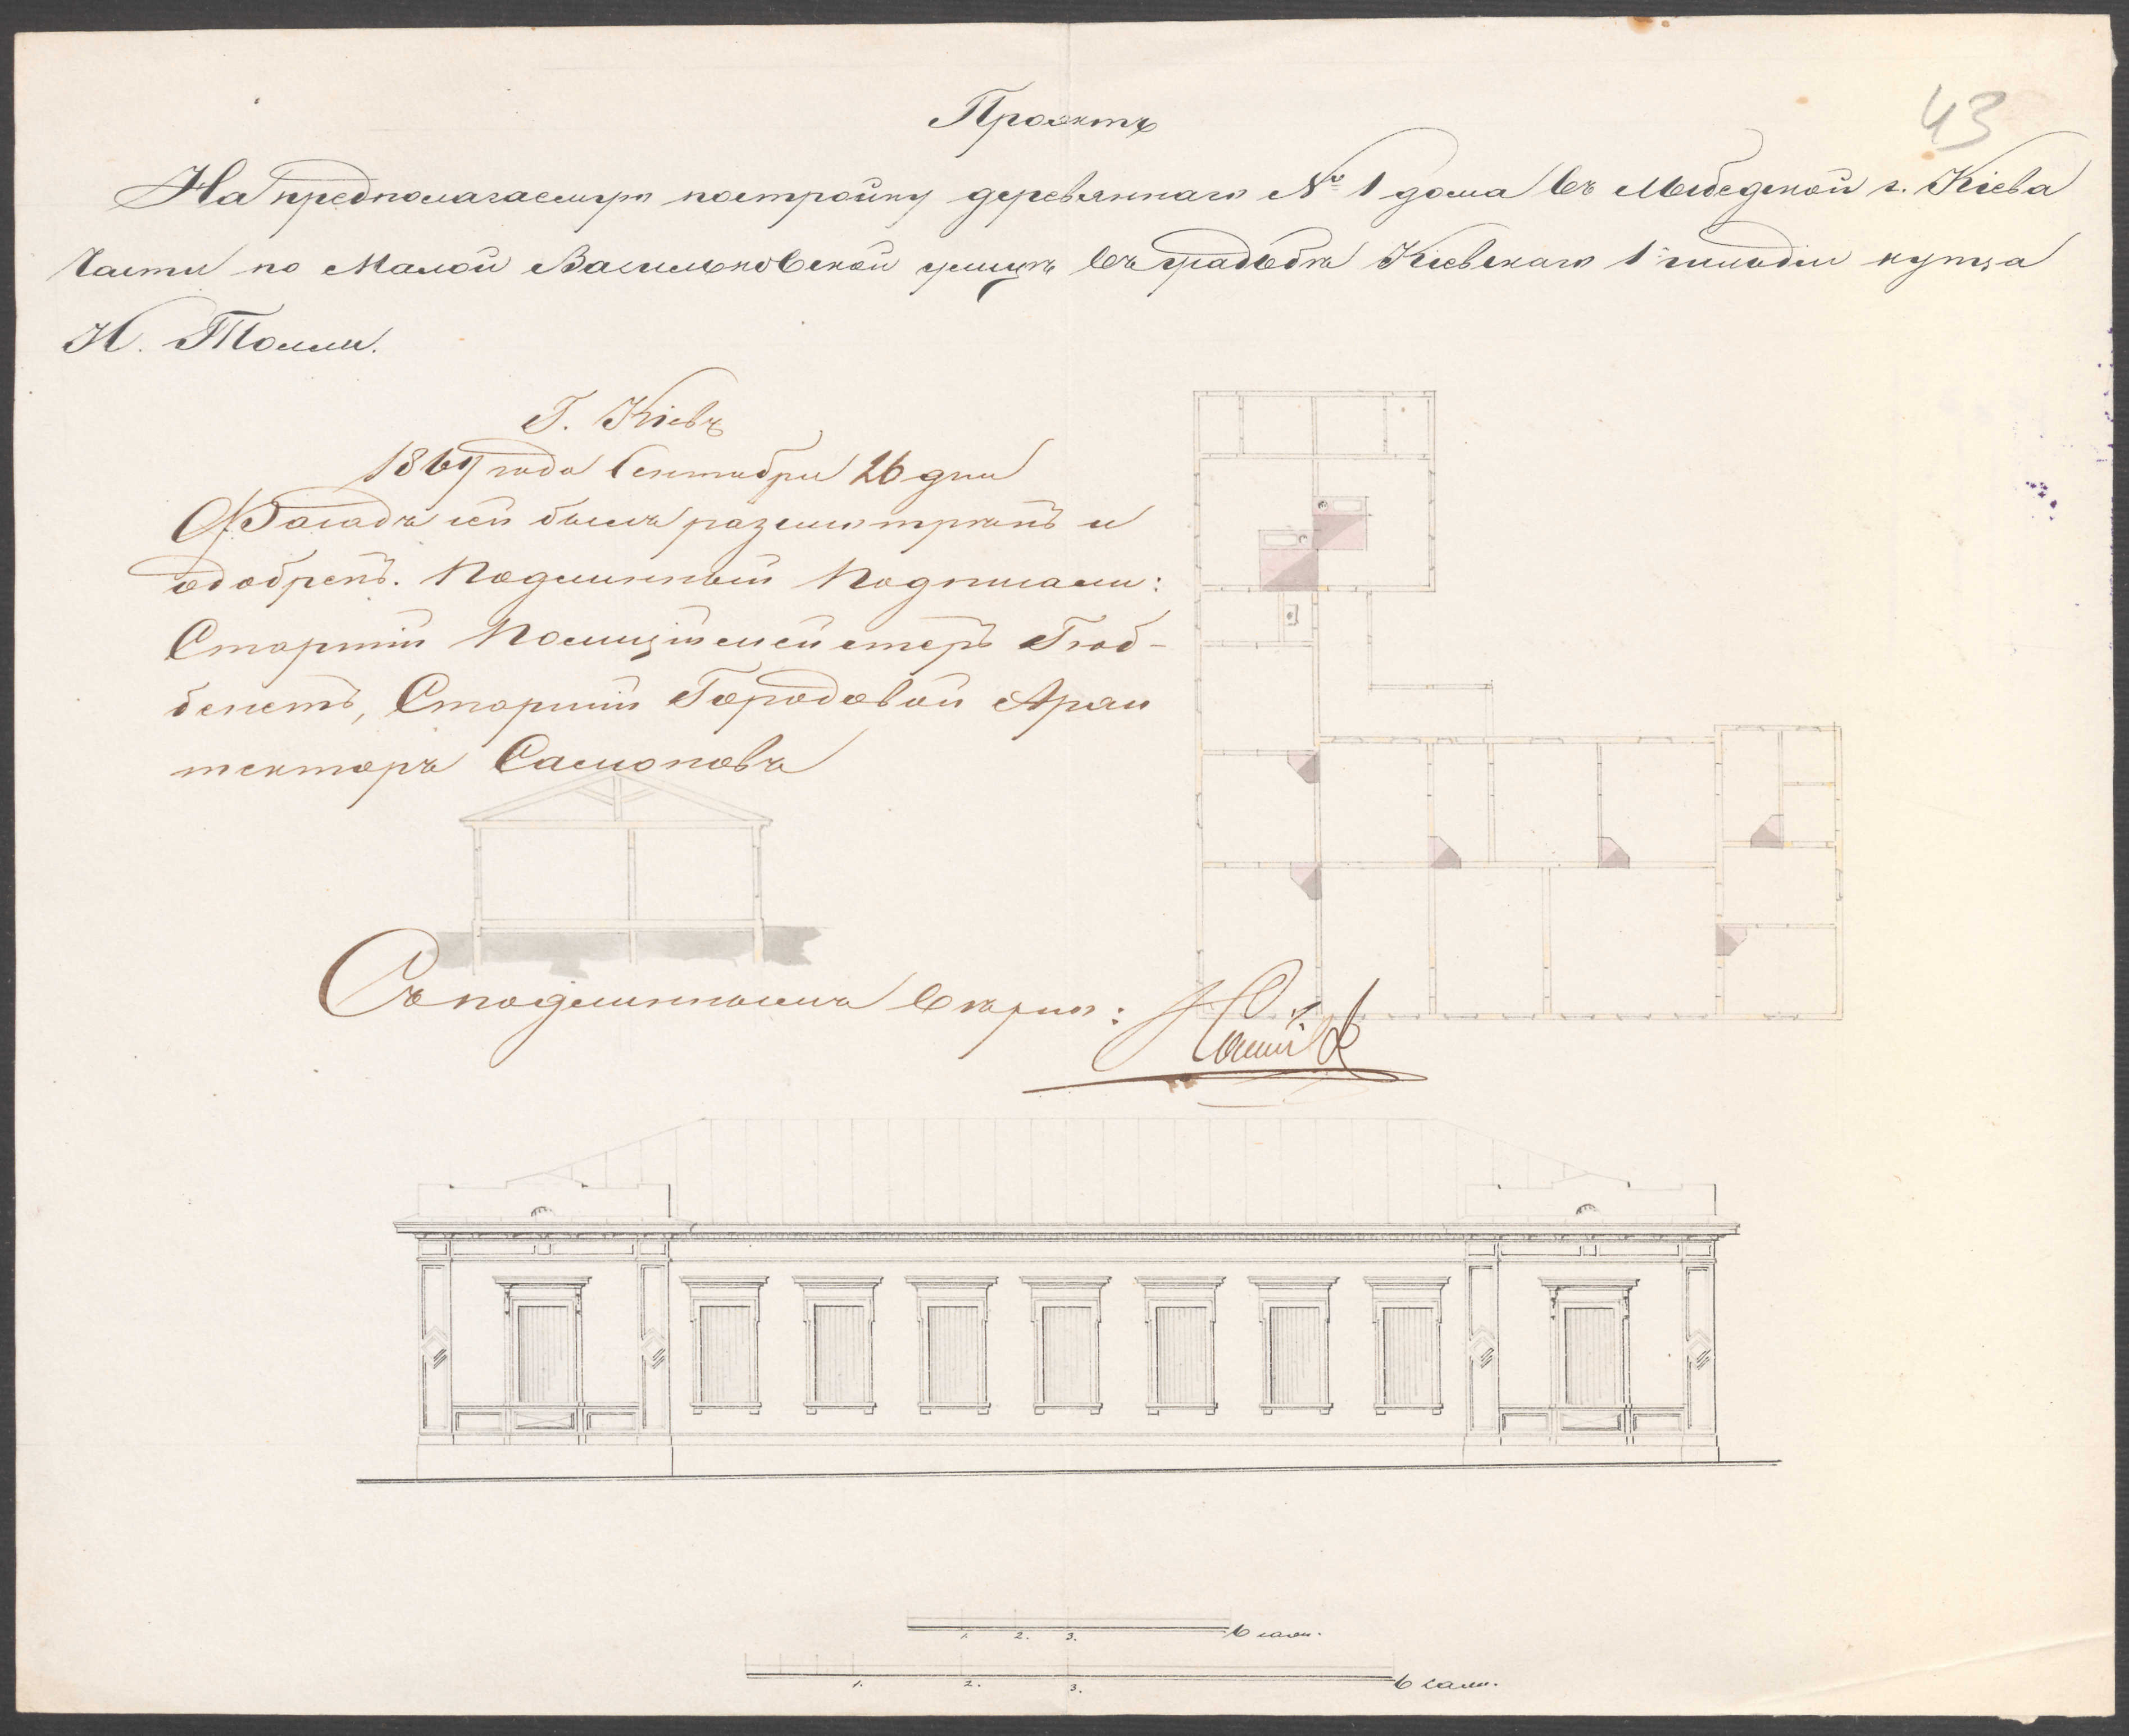 Проэктъ
43
На предполагаемую постройку деревяннаго № 1 дома въ Лыбедской г. Кіева
Части по Малой Васильковской улицѣ въ усадьбѣ Кіевскаго 1й гильдіи купца
И. Толли.
Г. Кіевъ
1869 года Сентября 26 дня
Фасадъ сей былъ разсмотрѣнъ и
одобренъ. Подлинный Подписали:
Старшій Полицiймейстеръ Гюб-
бенетъ, Старшій Городовой Архи
текторъ Самоновъ
Съ подлиннымъ вѣрно:
1. 2. 3. 6 саж.
1. 2. 3. 6 саж.